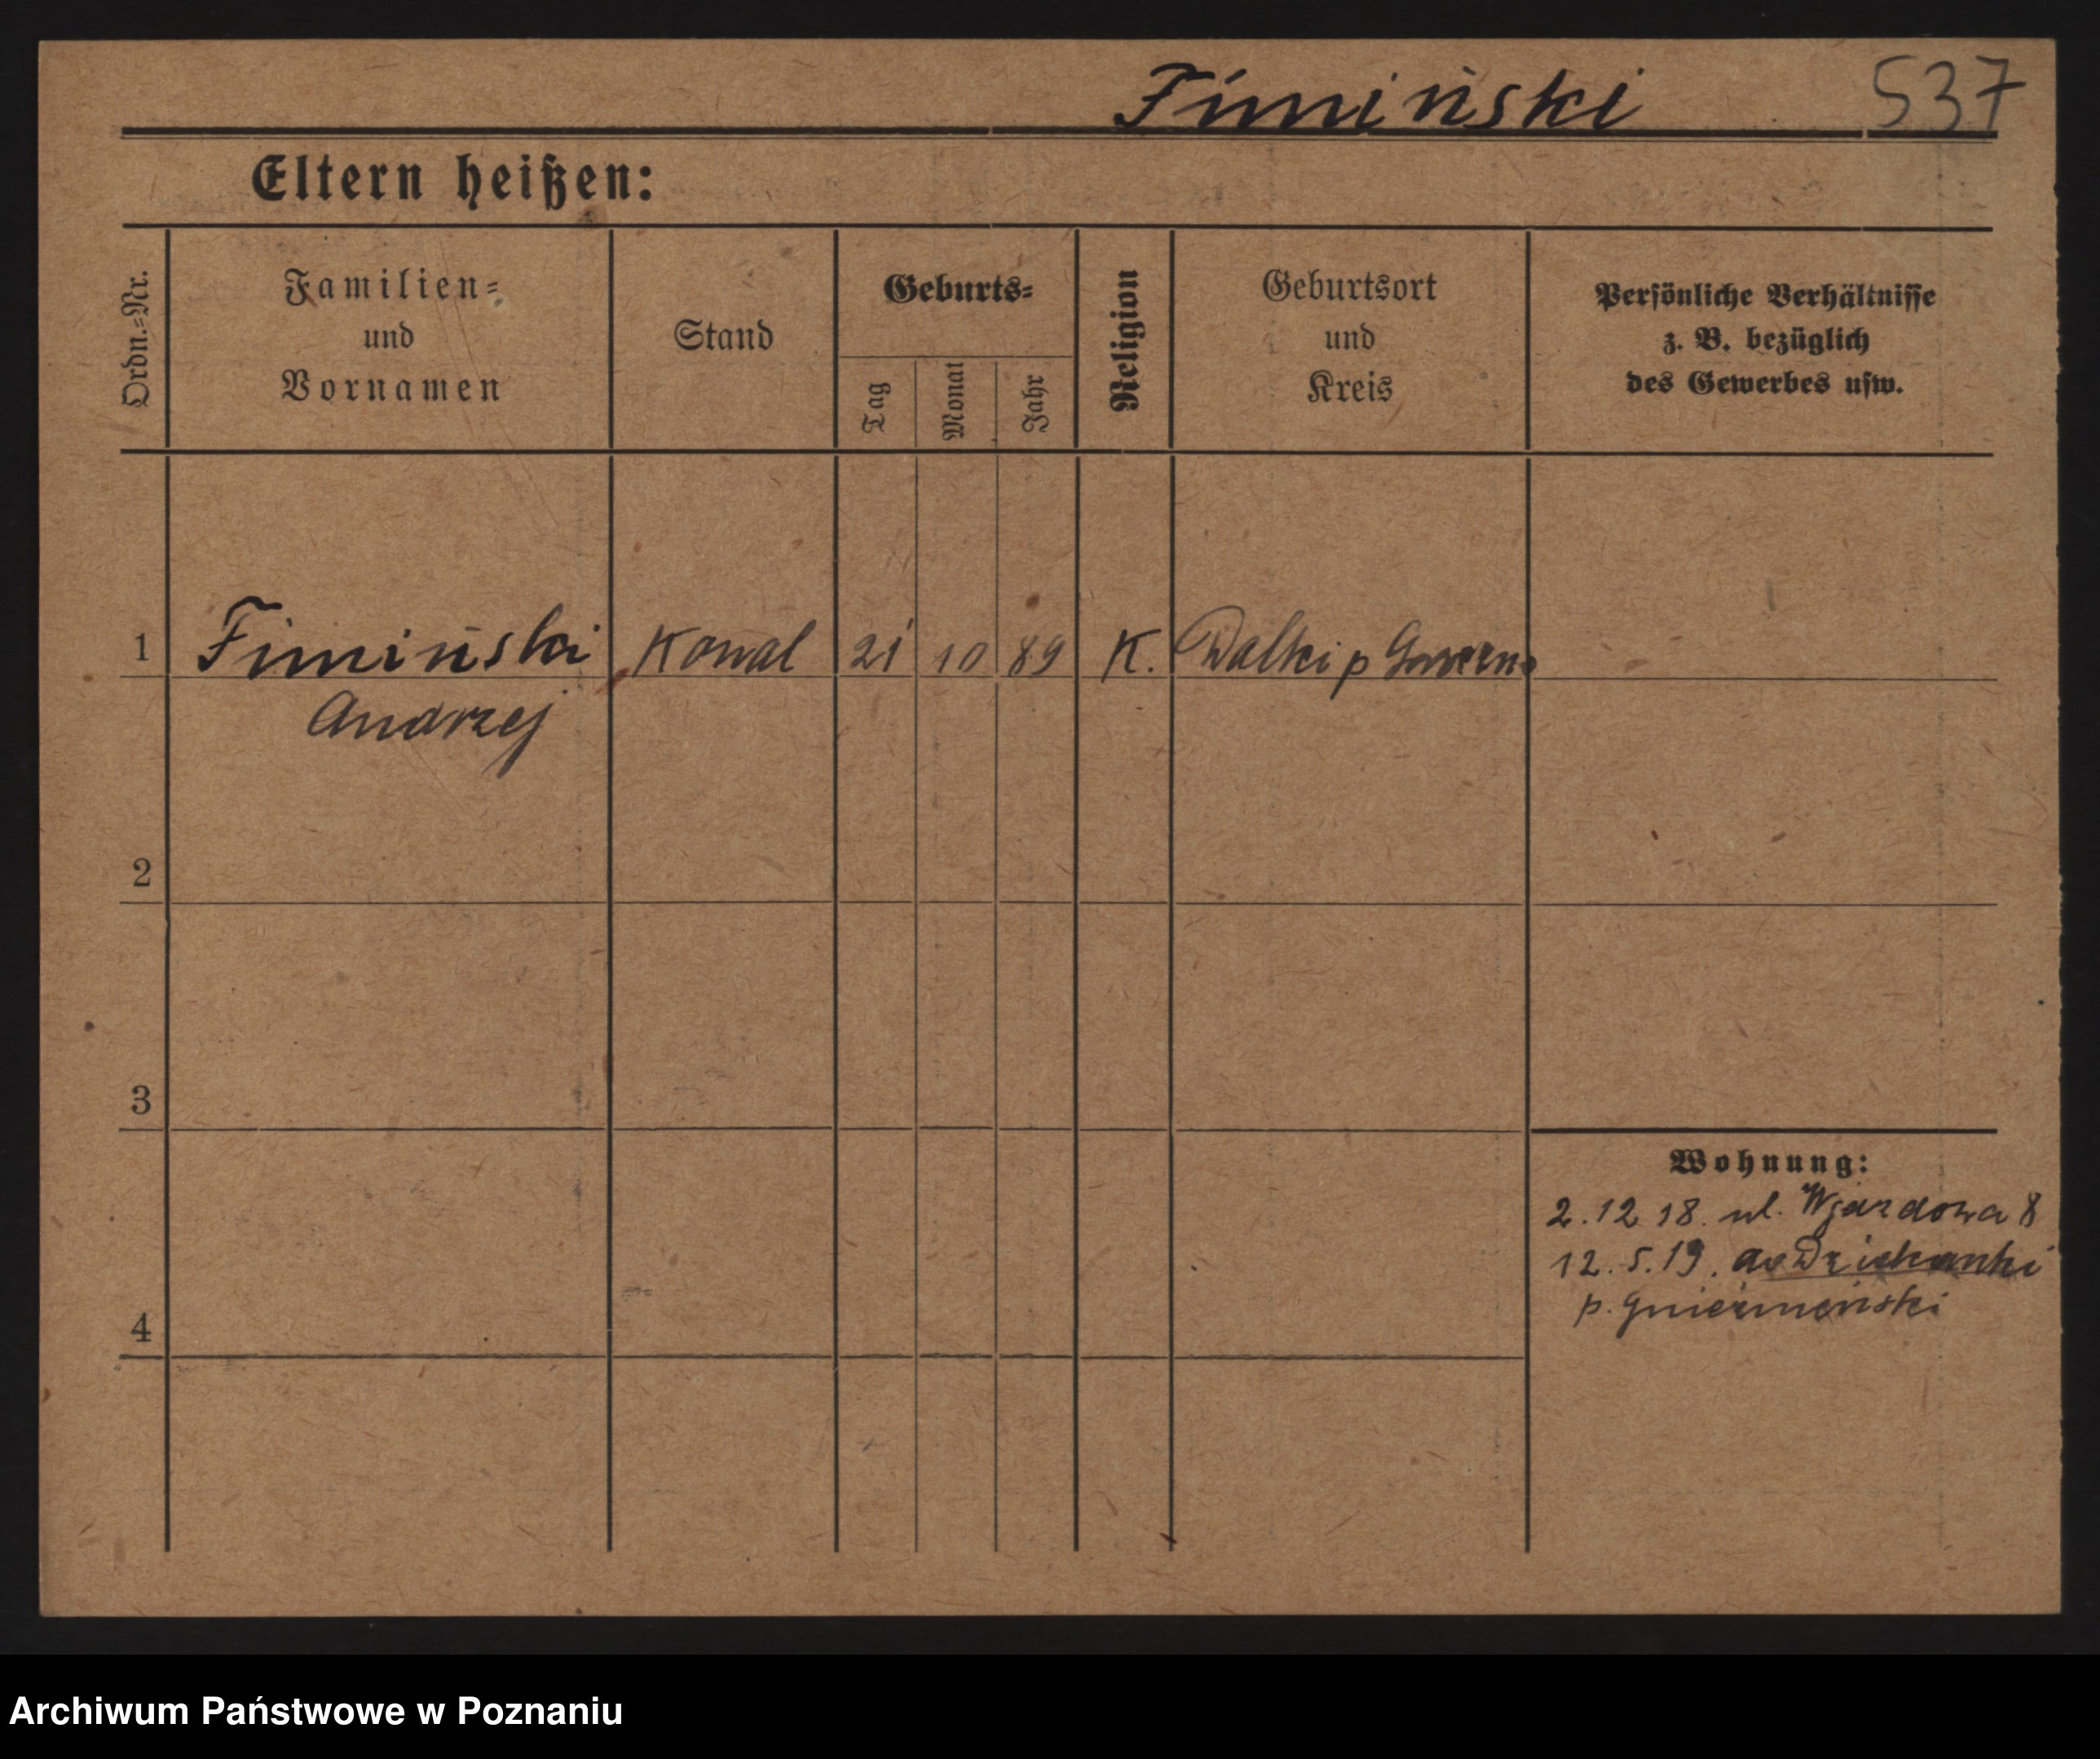 Fimiński 537
Eltern heißen:
Ordn.=Nr.
Familien=
und
Vornamen
Stand
Geburts=
Tag
Monat
Jahr
Religion
Geburtsort
und
Kreis
Persönliche Verhältnisse
z. B. bezüglich
des Gewerbes usw.
1 Fimiński Kowal 21 10 89 K. Dalki p
Andrzej
2
3
4
Wohnung:
2.12 18. ul. Wjazdowa 8
12.5.19. do Dziekanki
p.
Archiwum Państwowe w Poznaniu